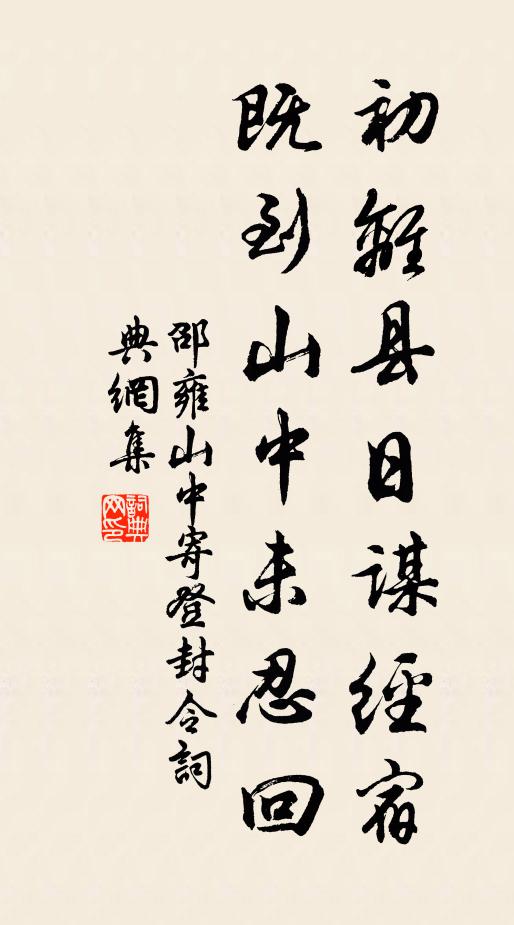 初離县日謀經宿
既到山中未忍回
邵雍山中寄登封令詞
典網集
詞典网印